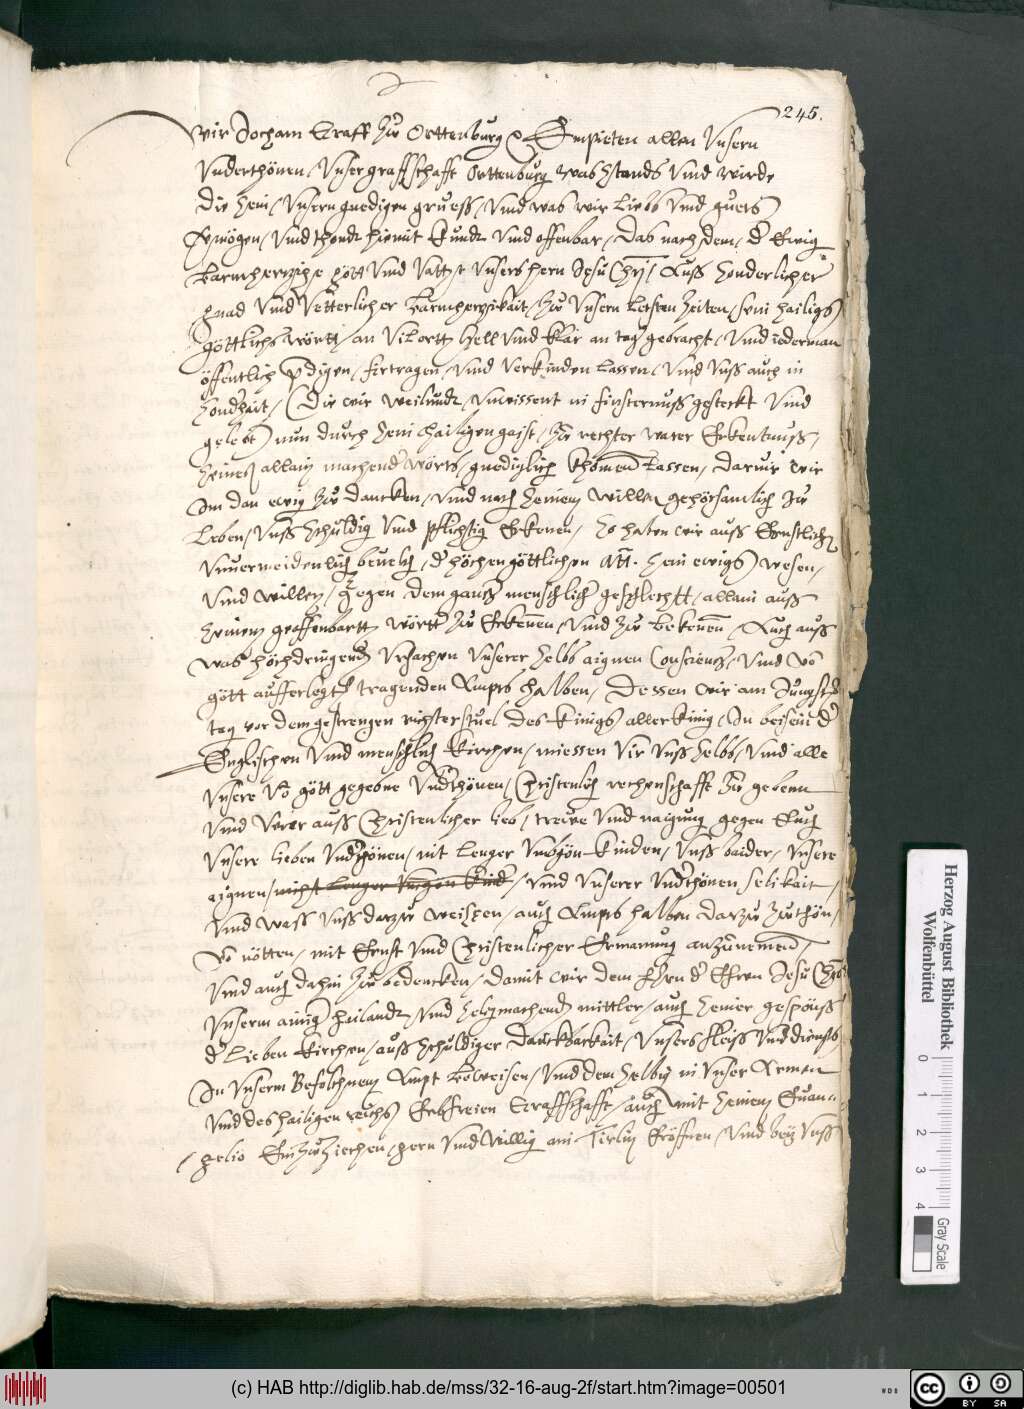 245.
Wir Jocham Graff zu Orttenburg Empieten allen Unsern
Underthönen, Unser graffschafft Orttenburg was stands Und wirde
die sein, Unsern gnedigen gruess, Und was wir liebs Und guets
vermögen, Und thondt hiemit kundt Und offenbar, Das nach dem, d Ewig
Barmherzige gott Und Vatter Unsers hern Jesu Chrj, Auss sonderlicher
gnad Und Vetterlicher Barmherzikait, zu Unsern letsten Zeiten, sein hailigs
göttlichs wortt, an Vil ortt hell Und klar an tag gebracht, Und iederman
öffentlich pdigen, firtragen, Und Verkinden lassen, Und Unss auch in
sondhait, (Die wir weilundt, Unwissent in finsternuss gesteckt Und
gelebt) nun durch sein hailigen gaist, zu rechter warer Erkentnuss,
seines allain machend worts, gnediglich khomen lassen, darumb wir
Im dan ewig zu dancken, Und nach seinem willen gehörsamlich zu
Leben, Unss schuldig Und pflichtig Erkenen, so haben wir auss Ernstlich
Unvermeidenlich bevelch, d höchen göttlichen Mtt. sein ewigs wesen,
Und willen, gegen dem gantz menschlich geschlecht, allain auss
seinem geoffenbartt wortt zu Erkennen, Und zu bekennen, Auch auss
was hochdringend Ursachen Unserer selbs aignen Conscientz, Und vo
gott aufferlegts tragenden Ampts halben, Dessen wir am Jungsten
tag vor dem gestrengen richterstuel des kinigs aller kinig, In beisein d
Englischen Und menschlich kirchen, miessen Vir Unss selbs, Und alle
Unsere vo gott gegebne Undthönen, Christenlich rechenschafft zu geben
Und Vorer auss Christenlicher lieb, trewe Und naigung gegen Euch
Unsere lieben Undthönen, nit lenger Umbgön kinden, Unss baider, Unsere
aignen, nicht lenger Umgen kind, Und Unserer Undthönen selikait,
Und wass Unss darzu weissen, auch Ampts halben darzu zu thön,
vo nötten, mit Ernst Und Christenlicher Ermanung anzunemen,
Und auch dahin zu bedencken, damit wir dem hern d Ehren Jesu Chro
Unserm ainig hailandt, Und seligmachend mittler, auch seiner gespons
d Lieben kirchen, auss schuldiger danckbarkait, Unsers fleiss Und diensts
In Unserm Befolchnem Ampt beweisen, Und dem selbig in Unser Armen
Und des hailigen reichs Erbfreien Graffschafft, auch mit seinem Euan-
gelio Einzuziechen, gern Und Willig ain Tirlin Eröffnen, Und bey Unss
Herzog August Bibliothek
Wolfenbüttel
0 1 2 3 4
Gray Scale
(c) HAB http://diglib.hab.de/mss/32-16-aug-2f/start.htm?image=00501
WDB
cc BY SA